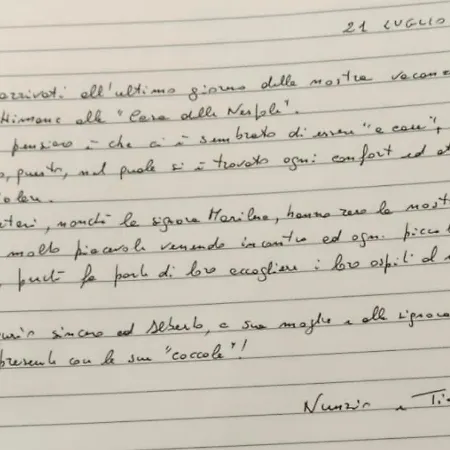 21 LUGLIO
arrivati all'ultimo giorno della nostra vacan
ttimane alla "Casa delle Nespole".
pensiero è che ci è sembrato di essere "a casa",
o, questo, nel quale si è trovato ogni confort ed at
olare.
nonché la signora Marilena, hanno reso la nost
molto piacevole venendo incontro ed ogni picco
fa parte di loro accogliere i loro ospiti al
sincero ed Alberto, a sua moglie e alla signora
presente con le sue "coccole"!
Nunzio e Ti